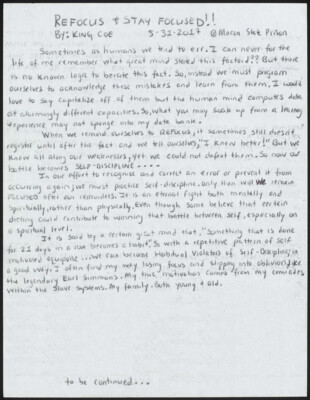 REFOCUS & STAY FOCUSED!!
By: KING COE 5-31-2017 @Macon State Prison
Sometimes as humans we tend to err. I can never for the
life of me remember what great mind stated this factoid?? But there
is no known logic to berate this fact. So, instead we must program
ourselves to acknowledge these mistakes and learn from them. I would
love to say capitalize off of them but the human mind computes data
at alarmingly different capacities. So, what you may soak up from a learning
experience may not sponge into my data bank.
When we remind ourselves to REFOCUS, it sometimes still doesn't
register until after the fact and we tell ourselves, "I knew better!" But we
knew all along our weaknesses, yet we could not defeat them. So now our
battle becomes SELF-DISCIPLINE....
In our effort to recognize and correct an error or prevent it from
occurring again; we must practice self-discipline. Only then will we remain
FOCUSED after our reminders. It is an eternal fight both mentally and
spiritually, rather than physically. Even though some believe that certain
dieting could contribute to winning that battle between self, especially on
a spiritual level.
It is said by a certain great mind that, "Something that is done
for 21 days in a row becomes a habit". So with a repetitive pattern of self
motivated equipoise... we can become Habitual Violators of Self-Discipline, in
a good way. I often find my way losing focus and slipping into oblivion like
the legendary Earl Simmons. My true motivation comes from my comrades
within the slave systems. My family. Both young & old.
to be continued...